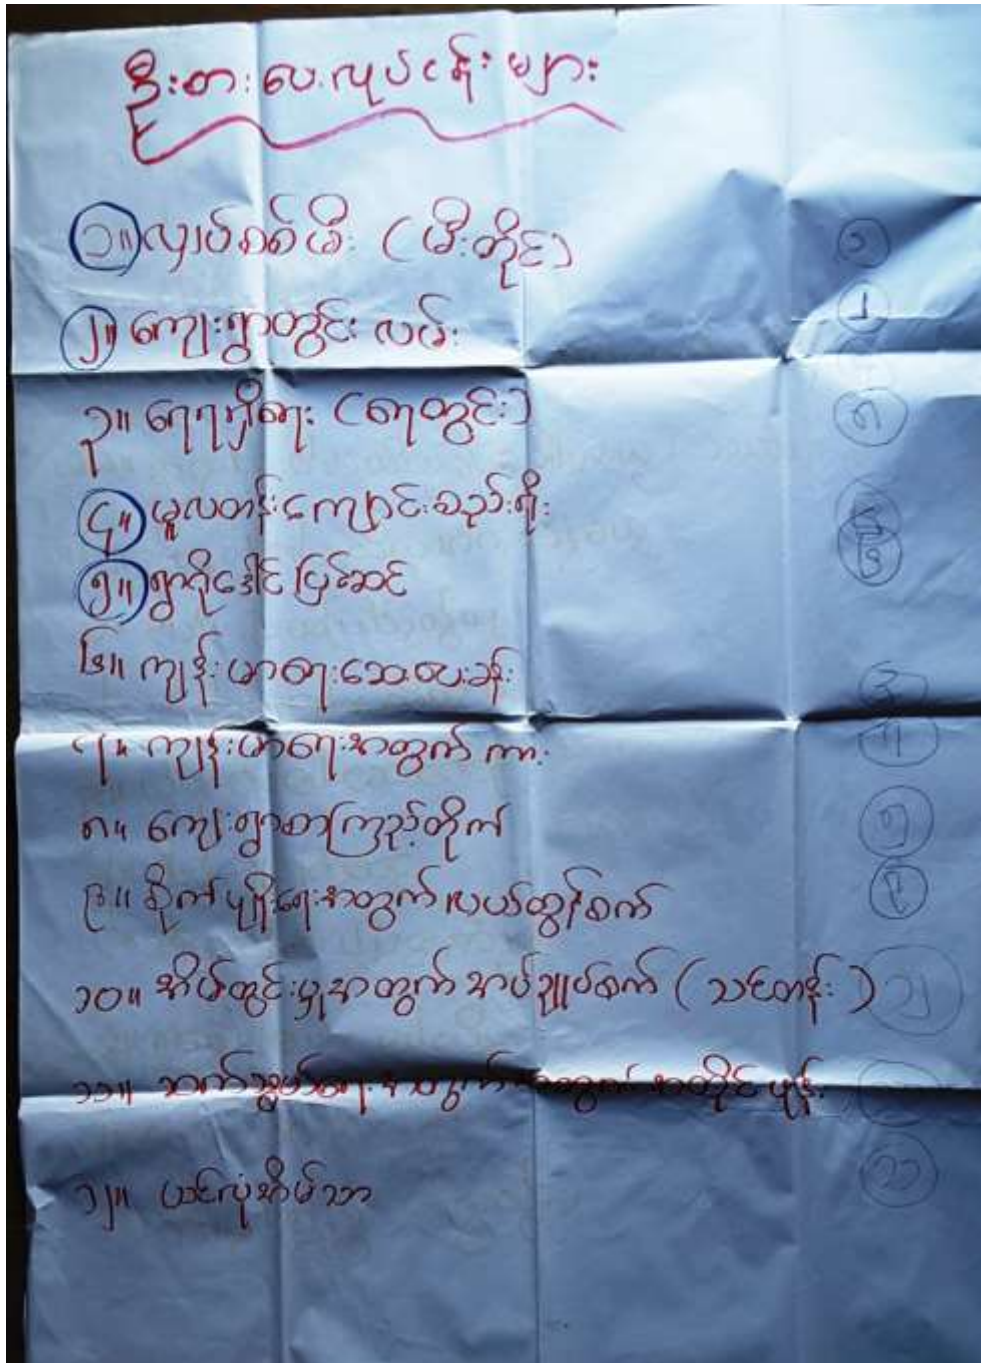 ဦးစားပေးလုပ်ငန်းများ
၁။ လျှပ်စစ်မီး (မီးတိုင်)
၂။ ကျေးရွာတွင်း လမ်း
၃။ ရေရရှိရေး (ရေတွင်း)
၄။ မူလတန်းကျောင်းစည်းရိုး
၅။ ရွာဂိုဒေါင် ပြင်ဆင်
၆။ ကျန်းမာရေးဆေးပေးခန်း
၇။ ကျန်းမာရေးအတွက် ကား
၈။ ကျေးရွာစာကြည့်တိုက်
၉။ စိုက်ပျိုးရေးအတွက် လယ်ထွန်စက်
၁၀။ အိမ်တွင်းမှုအတွက် အပ်ချုပ်စက် (သင်တန်း)
၁၁။ ဆက်သွယ်ရေးအတွက်
၁၂။ ယင်လုံအိမ်သာ